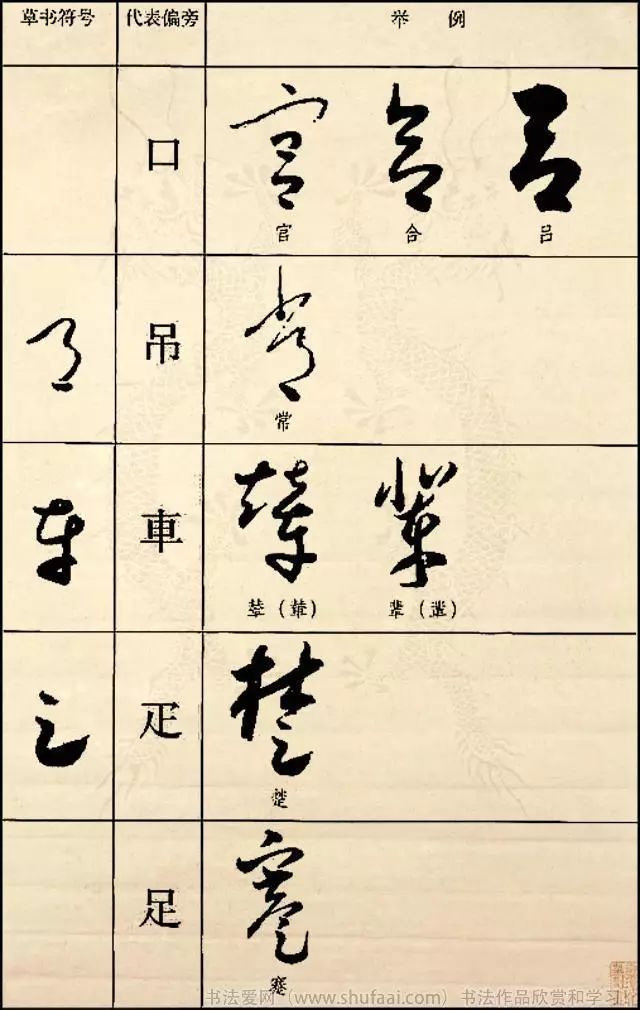 草书符号 代表偏旁 举例
口
官 合 吕
吊
常
車
辇（輦） 辈（輩）
疋
楚
足
蹇
书法爱网（www.shufaai.com）书法作品欣赏和学习